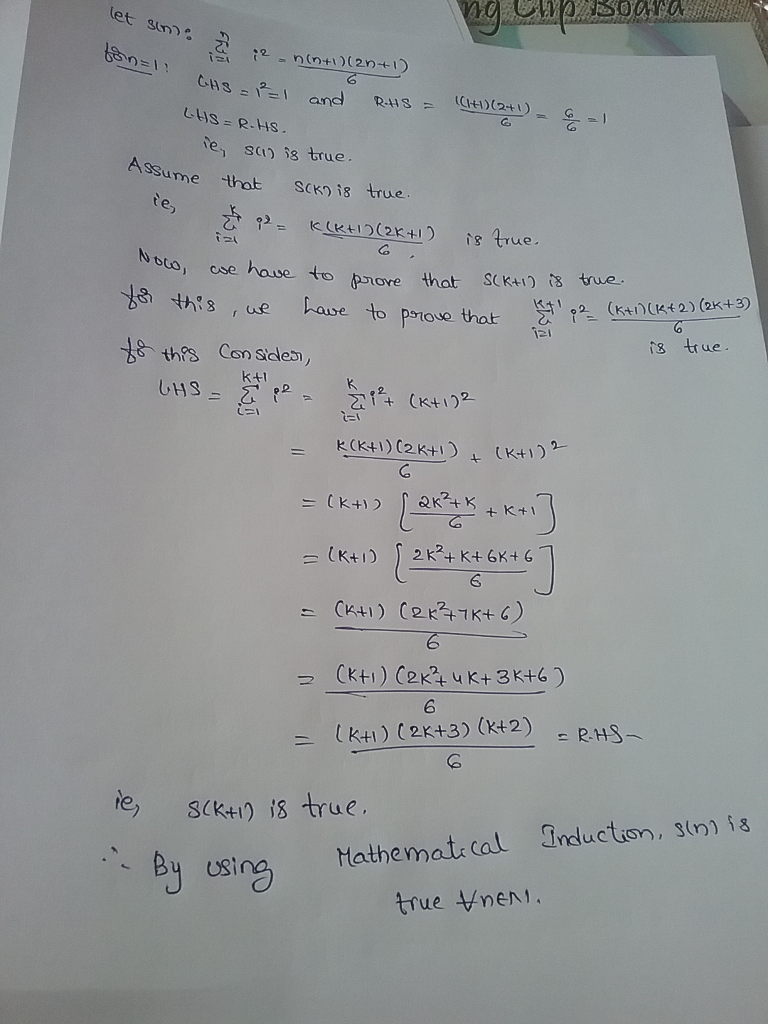 ng Clip Board
let s(n): n∑i=1 i² = n(n+1)(2n+1)/6
for n=1:
LHS = 1² = 1 and R.HS = 1(1+1)(2+1)/6 = 6/6 = 1
LHS = R.HS.
ie, s(1) is true.
Assume that S(K) is true.
ie, K∑i=1 i² = K(K+1)(2K+1)/6, is true.
Now, we have to prove that S(K+1) is true.
for this, we have to prove that K+1∑i=1 i² = (K+1)(K+2)(2K+3)/6
is true.
for this Consider,
LHS = K+1∑i=1 i² = K∑i=1 i² + (K+1)²
= K(K+1)(2K+1)/6 + (K+1)²
= (K+1) [2K²+K/6 + K+1]
= (K+1) [2K²+K+6K+6/6]
= (K+1)(2K²+7K+6)/6
= (K+1)(2K²+4K+3K+6)/6
= (K+1)(2K+3)(K+2)/6 = R.HS
ie, S(K+1) is true.
∴ By using Mathematical Induction, s(n) is
true ∀n∈N.